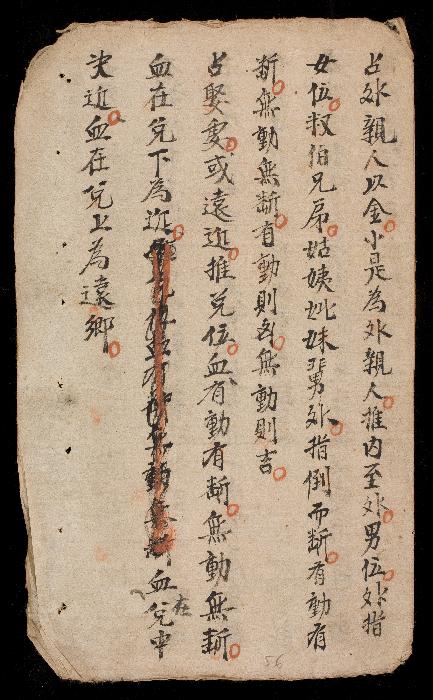 占外親人以金小是為外親人推内至外男位外指
女位叔伯兄弟姑姨姊妹輩外指倒而断有動有
断無動無断有動則凶無動則吉
占娶妻或遠近推兌位血有動有断無動無断
血在兌下為近血在兌中
夹近血在兌上為遠鄉
56